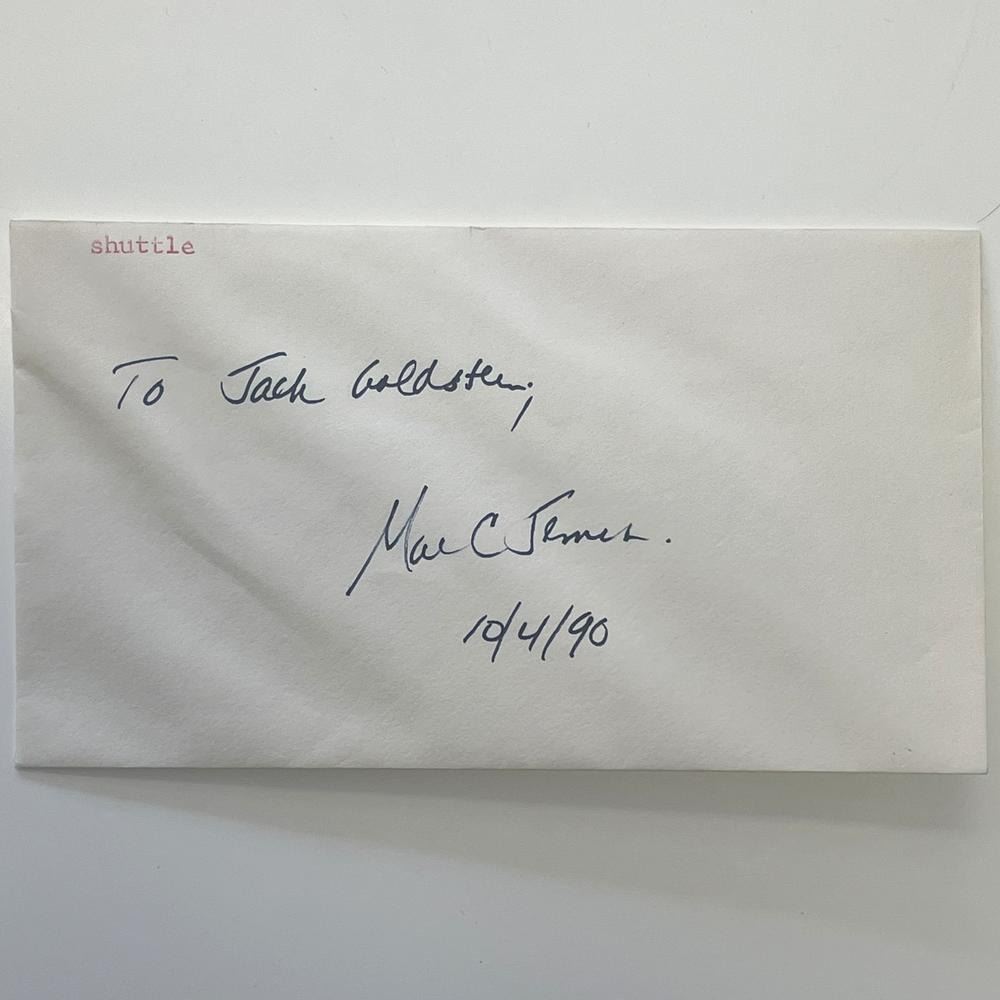 shuttle
To Jack Goldstein,
Mae C Jemison.
10/4/90